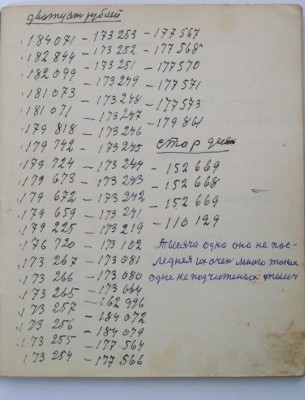 двотцат рублей
184071 – 173253 – 177567
182844 – 173252 – 177568
182099 – 173251 – 177570
181073 – 173249 – 177571
181071 – 173248 – 177573
179818 – 173247 – 179861
179742 – 173246
179724 – 173245 стор
179673 – 173244 – 152669
179672 – 173243 – 152668
179659 – 173242 – 152669
179225 – 173241 – 110129
176720 – 173219
173267 – 173102 Тысяча одна она не пос-
173266 – 173081 ледняя их очен много таких
173265 – 173080 одне не подчитаных тысяч
173257 – 173064
173256 – 162996
173255 – 184072
173254 – 184079
– 177564
– 177566